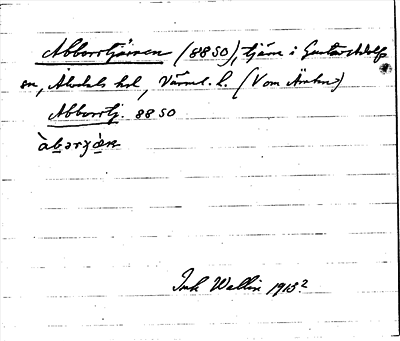 Abborrtjärnen (88 SO), tjärn i Gustav Adolfs
sn, Älvdals hd, Värml. l. (Von Arehn)
Abborrtj. 88 SO
àbərʒæ̀n
Ink Wallin 1913?